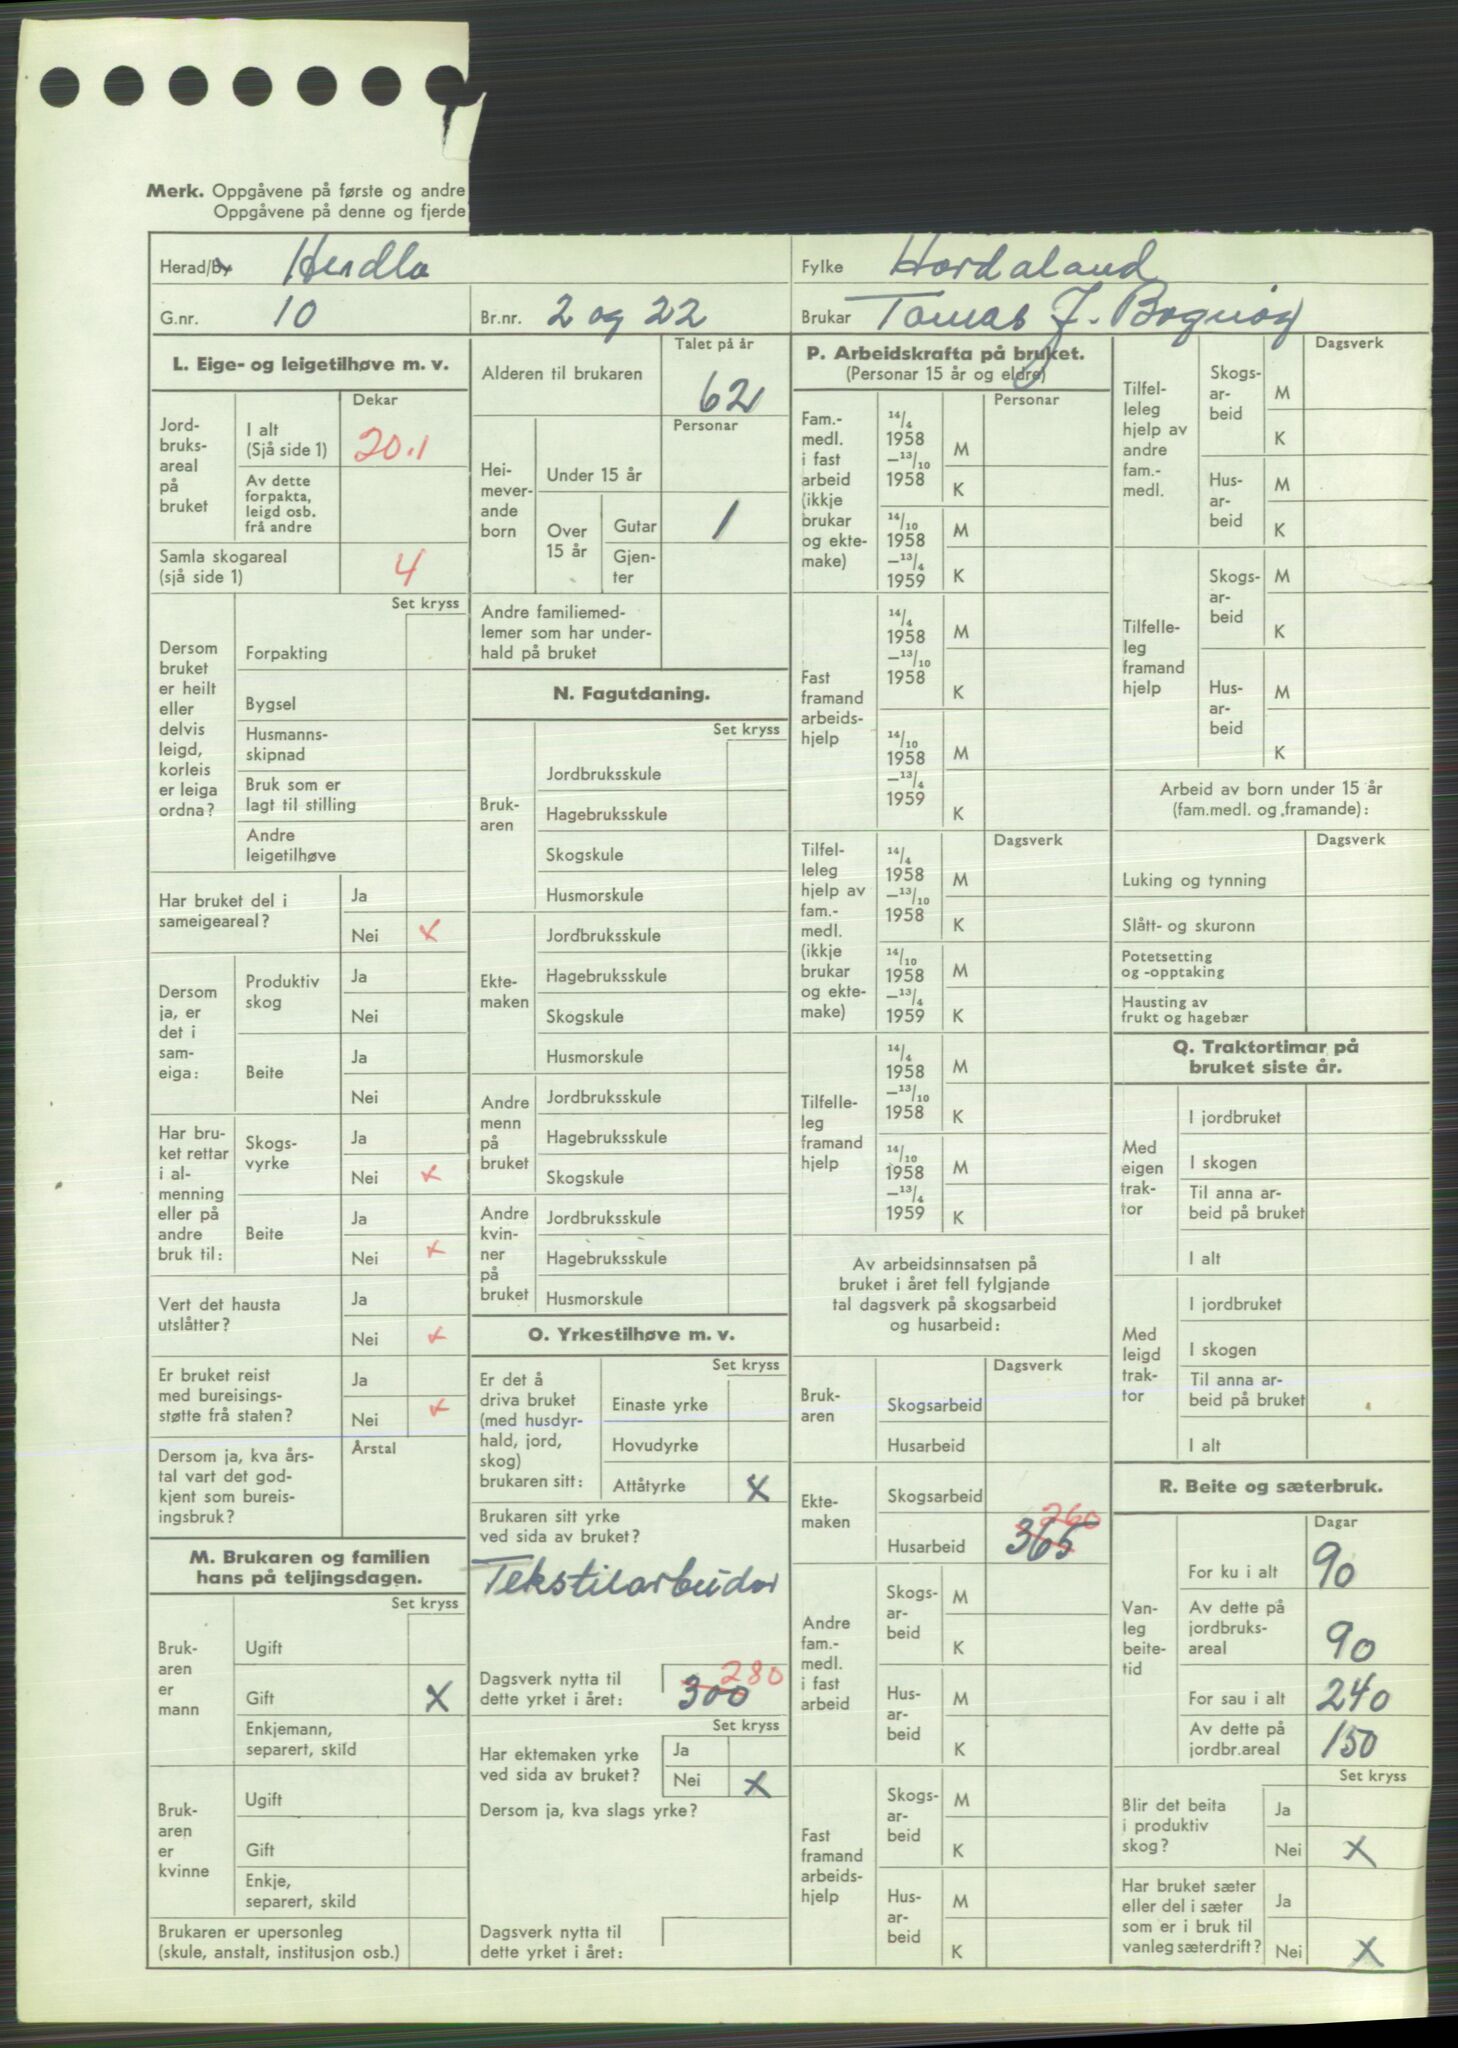 Merk. Oppgåvene på første og andre
Oppgåvene på denne og fjerde
Herad/By Herdla
Fylke Hordaland
G.nr. 10
Br.nr. 2 og 22
Brukar Tomas J. Bognøy
L. Eige- og leigetilhøve m. v.
Dekar
Jord-
bruks-
areal
på
bruket
I alt
(Sjå side 1) 20.1
Av dette
forpakta,
leigd osb.
frå andre
Samla skogareal
(sjå side 1) 4
Set kryss
Dersom
bruket
er heilt
eller
delvis
leigd,
korleis
er leiga
ordna?
Forpakting
Bygsel
Husmanns-
skipnad
Bruk som er
lagt til stilling
Andre
leigetilhøve
Har bruket del i
sameigeareal?
Ja
Nei x
Dersom
ja, er
det i
sam-
eiga:
Produktiv
skog
Ja
Nei
Beite
Ja
Nei
Har bru-
ket rettar
i al-
menning
eller på
andre
bruk til:
Skogs-
vyrke
Ja
Nei x
Beite
Ja
Nei x
Vert det hausta
utslåtter?
Ja
Nei x
Er bruket reist
med bureisings-
støtte frå staten?
Ja
Nei x
Dersom ja, kva års-
tal vart det god-
kjent som bureis-
ingsbruk?
Årstal
M. Brukaren og familien
hans på teljingsdagen.
Set kryss
Bruk-
aren
er
mann
Ugift
Gift X
Enkjemann,
separert, skild
Bruk-
aren
er
kvinne
Ugift
Gift
Enkje,
separert, skild
Brukaren er upersonleg
(skule, anstalt, institusjon osb.)
Talet på år
Alderen til brukaren 62
Personar
Hei-
mever-
ande
born
Under 15 år
Over
15 år
Gutar 1
Gjen-
ter
Andre familiemed-
lemer som har under-
hald på bruket
N. Fagutdaning.
Set kryss
Bruk-
aren
Jordbruksskule
Hagebruksskule
Skogskule
Husmorskule
Ekte-
maken
Jordbruksskule
Hagebruksskule
Skogskule
Husmorskule
Andre
menn
på
bruket
Jordbruksskule
Hagebruksskule
Skogskule
Andre
kvin-
ner
på
bruket
Jordbruksskule
Hagebruksskule
Husmorskule
O. Yrkestilhøve m. v.
Set kryss
Er det å
driva bruket
(med husdyr-
hald, jord,
skog)
brukaren sitt:
Einaste yrke
Hovudyrke
Attåtyrke X
Brukaren sitt yrke
ved sida av bruket?
Tekstilarbeidar
Dagsverk nytta til
dette yrket i året: 300 280
Set kryss
Har ektemaken yrke
ved sida av bruket?
Ja
Nei X
Dersom ja, kva slags yrke?
Dagsverk nytta til
dette yrket i året:
P. Arbeidskrafta på bruket.
(Personar 15 år og eldre)
Personar
Fam.-
medl.
i fast
arbeid
(ikkje
brukar
og ekte-
make)
14/4
1958
—13/10
1958
M
K
14/10
1958
—13/4
1959
M
K
Fast
framand
arbeids-
hjelp
14/4
1958
—13/10
1958
M
K
14/10
1958
—13/4
1959
M
K
Dagsverk
Tilfel-
leleg
hjelp av
fam.-
medl.
(ikkje
brukar
og ekte-
make)
14/4
1958
—13/10
1958
M
K
14/10
1958
—13/4
1959
M
K
Tilfelle-
leg
framand
hjelp
14/4
1958
—13/10
1958
M
K
14/10
1958
—13/4
1959
M
K
Av arbeidsinnsatsen på
bruket i året fell fylgjande
tal dagsverk på skogsarbeid
og husarbeid:
Dagsverk
Bruk-
aren
Skogsarbeid
Husarbeid
Ekte-
maken
Skogsarbeid
Husarbeid 365 260
Andre
fam.-
medl.
i fast
arbeid
Skogs-
ar-
beid
M
K
Hus-
ar-
beid
M
K
Fast
framand
arbeids-
hjelp
Skogs-
ar-
beid
M
K
Hus-
ar-
beid
M
K
Dagsverk
Tilfel-
leleg
hjelp av
andre
fam.-
medl.
Skogs-
ar-
beid
M
K
Hus-
ar-
beid
M
K
Tilfelle-
leg
framand
hjelp
Skogs-
ar-
beid
M
K
Hus-
ar-
beid
M
K
Arbeid av born under 15 år
(fam.medl. og framande):
Dagsverk
Luking og tynning
Slått- og skuronn
Potetsetting
og -opptaking
Hausting av
frukt og hagebær
Q. Traktortimar på
bruket siste år.
Med
eigen
trak-
tor
I jordbruket
I skogen
Til anna ar-
beid på bruket
I alt
Med
leigd
trak-
tor
I jordbruket
I skogen
Til anna ar-
beid på bruket
I alt
R. Beite og sæterbruk.
Dagar
Van-
leg
beite-
tid
For ku i alt 90
Av dette på
jordbruks-
areal 90
For sau i alt 240
Av dette på
jordbr.areal 150
Set kryss
Blir det beita
i produktiv
skog?
Ja
Nei X
Har bruket sæter
eller del i sæter
som er i bruk til
vanleg sæterdrift?
Ja
Nei X